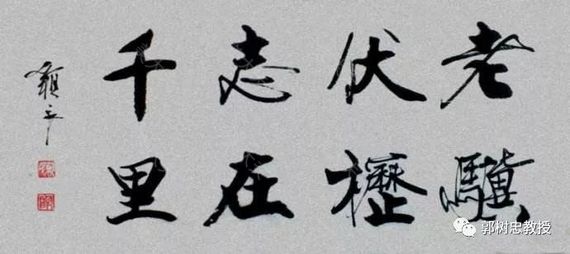 老驥
伏櫪
志在
千里
郭树忠教授